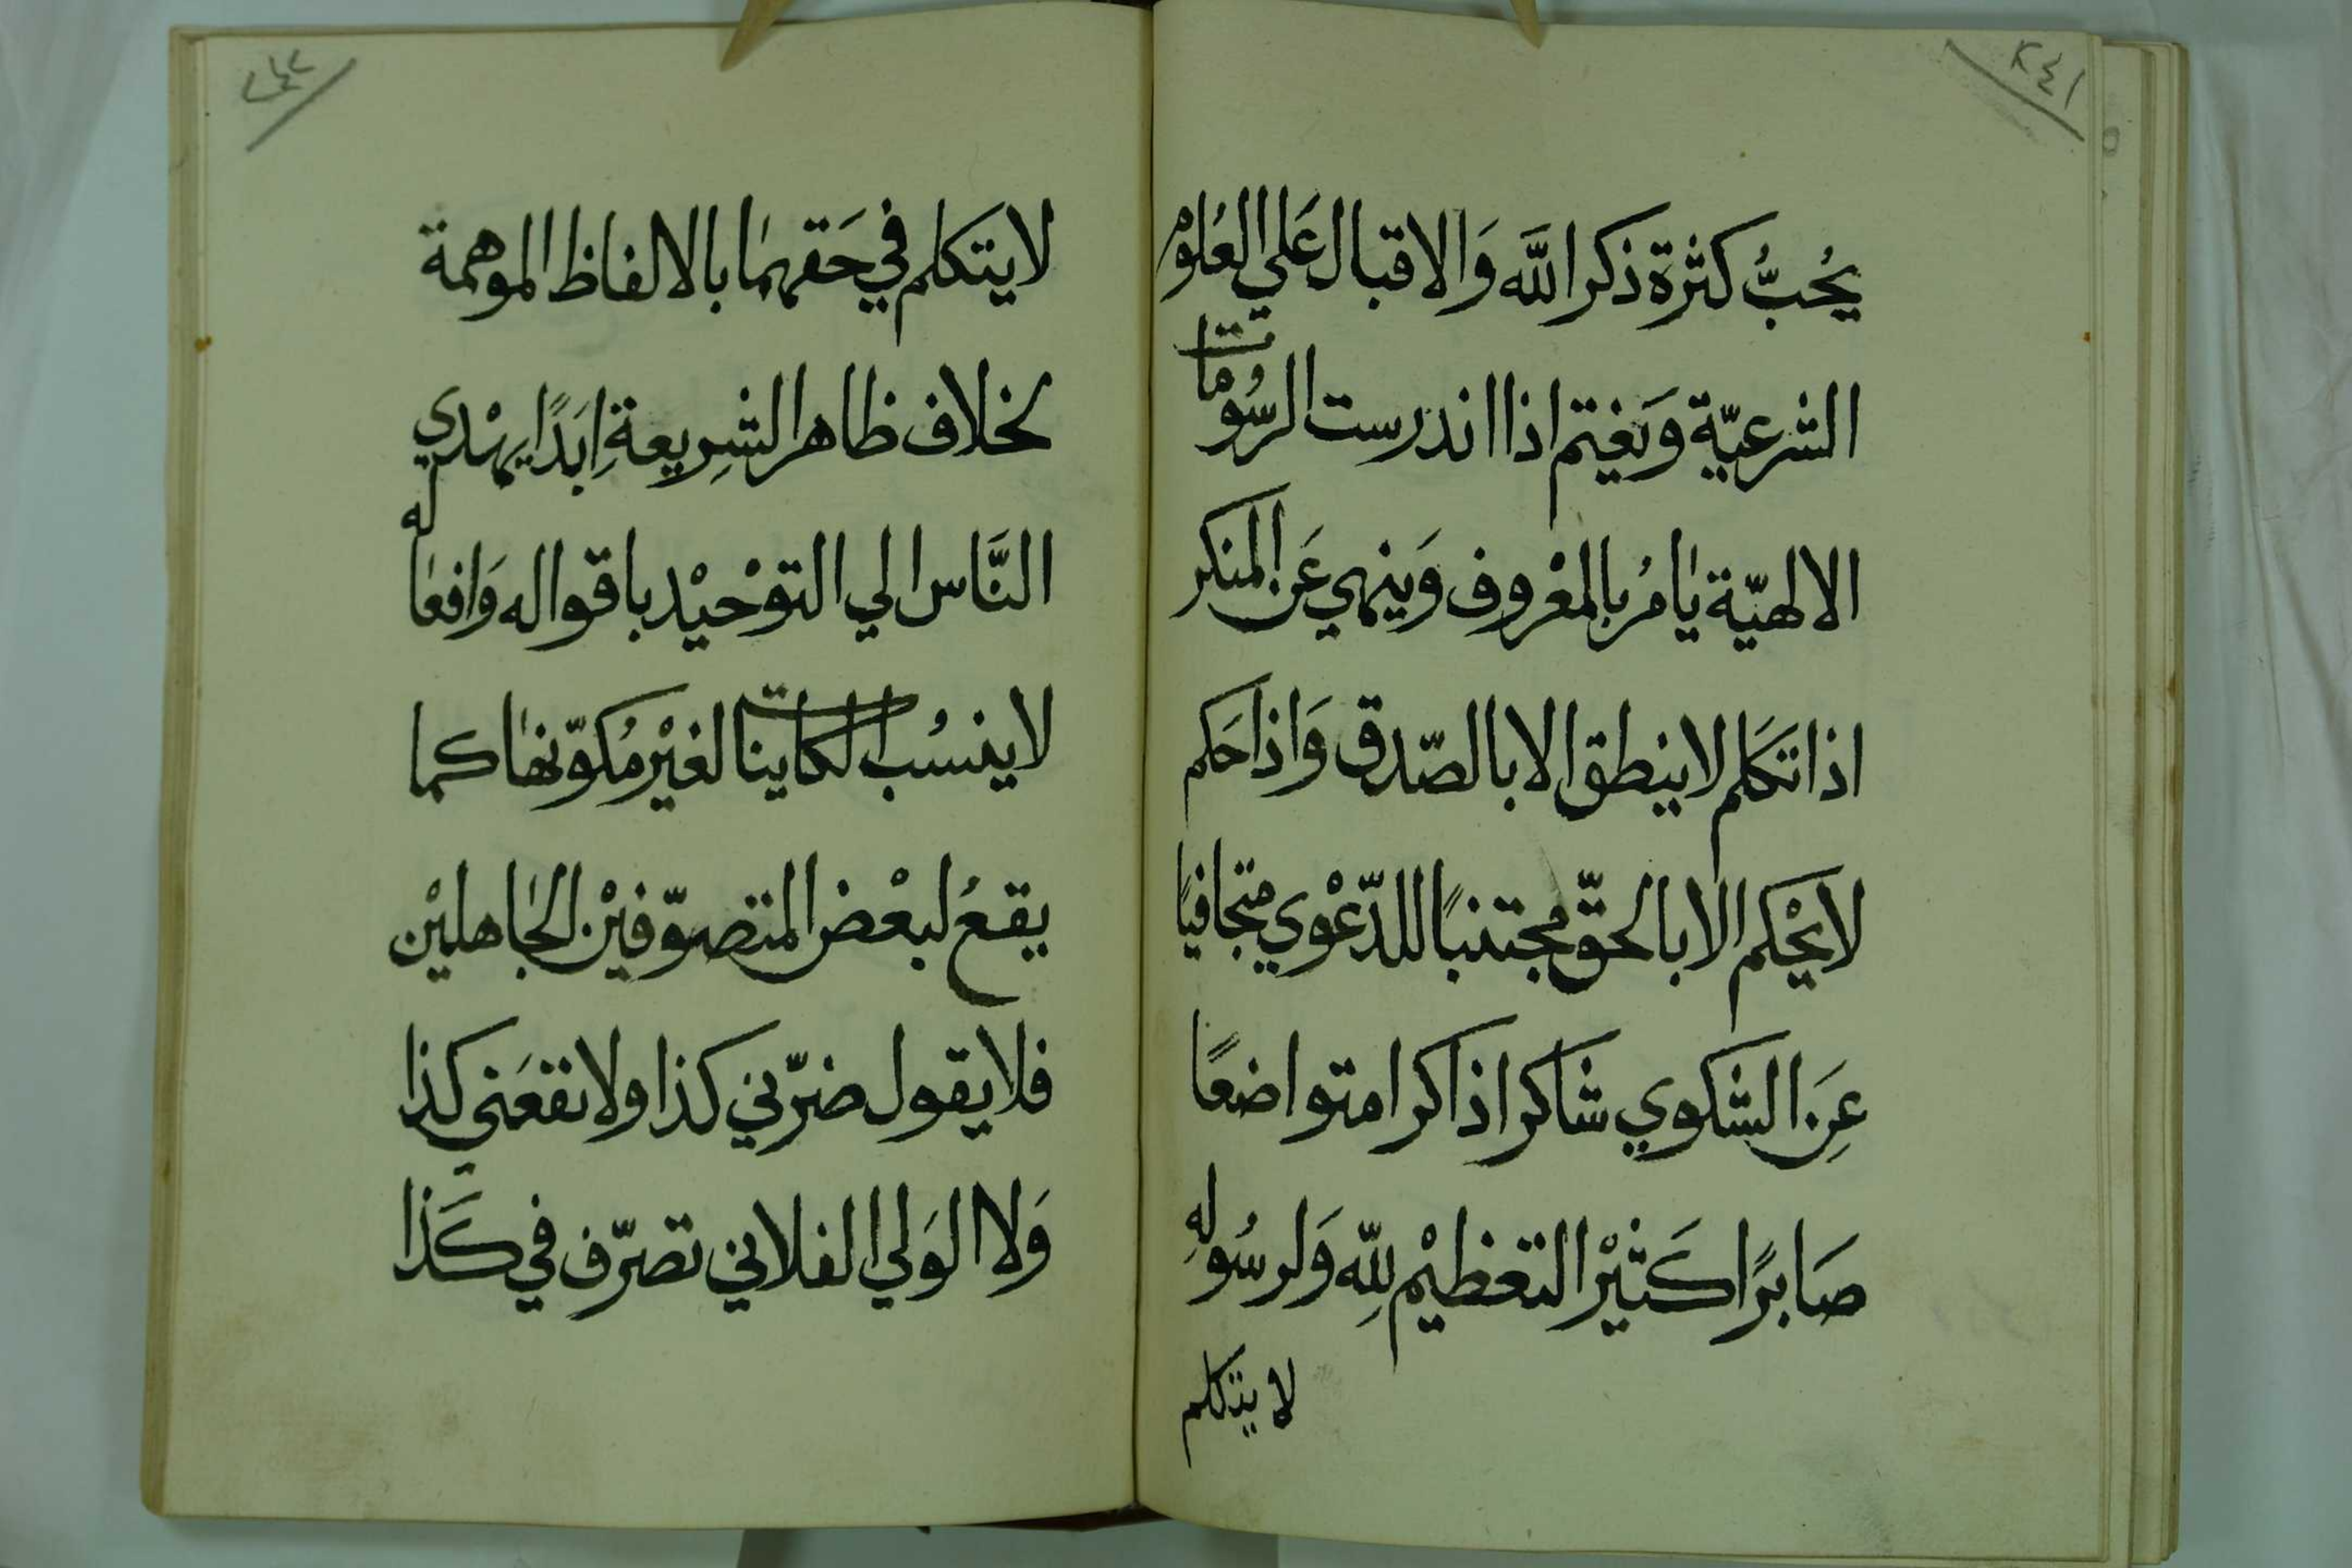 ٢٤١
يُحبُّ كثرة ذكر اللّه وَالاقبال عَلي العُلوم
الشرعيّة وَيغتم اذا اندرست الرسُومات
الالهيّة يامُر بالمعْروف وَينهي عَن المنكر
اذا تكَلم لا ينطق الا بالصّدق وَاذا حَكم
لا يحْكم الا بالحقّ مجتنبًا للدّعْوي متجافيًا
عَنِ الشكوي شاكرا ذاكرا متواضعًا
صَابرًا كَثيْر التعْظيْم للّهِ وَلرسُولهِ
لا يتكلم
٢٤٢
لا يتكلم في حَقهمَا بالالفاظ الموهمة
بخلاف ظاهر الشرِيعةِ ابَدًا يهْدي
النَّاس الي التوْحيْد باقواله وَافعاله
لا ينسُب الكاينات لغيْر مُكوّنها كما
يقعُ لبعْض المتصوّفيْن الجَاهليْن
فلا يقول ضرّني كذا ولا نفعَني كذا
وَلا الوَلي الفلاني تصرّف في كَذا